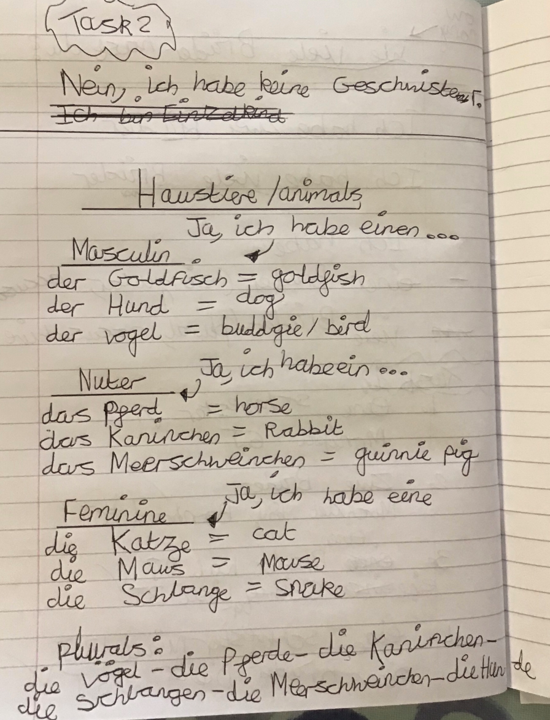 Task 2
Nein, ich habe keine Geschwister.
Ich bin Einzelkind
Haustiere/animals
Ja, ich habe einen...
Masculin
der Goldfisch = goldfish
der Hund = dog
der vogel = buddgie/bird
Ja, ich habe ein...
Nuter
das Pferd = horse
das Kaninchen = Rabbit
das Meerschweinchen = guinnie pig
Ja, ich habe eine
Feminine
die Katze = cat
die Maus = Mouse
die Schlange = snake
plurals:
die Vögel - die Pferde - die Kaninchen -
die Schlangen - die Meerschweinchen - die Hunde